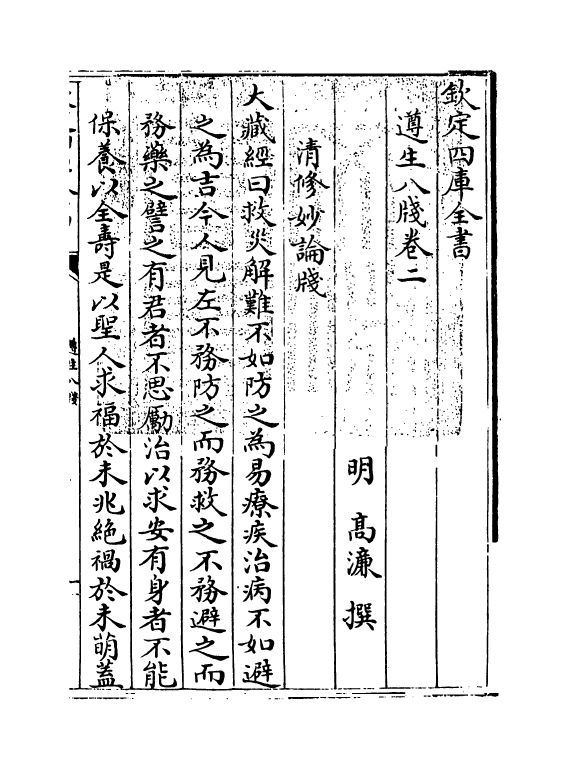 欽定四庫全書
遵生八牋卷二
明 高濂 撰
清修妙論牋
大藏經曰救災解難不如防之為易療疾治病不如避
之為吉今人見左不務防之而務救之不務避之而
務藥之譬之有君者不思勵治以求安有身者不能
保養以全壽是以聖人求福於未兆絕禍於未萌蓋
遵生八牋